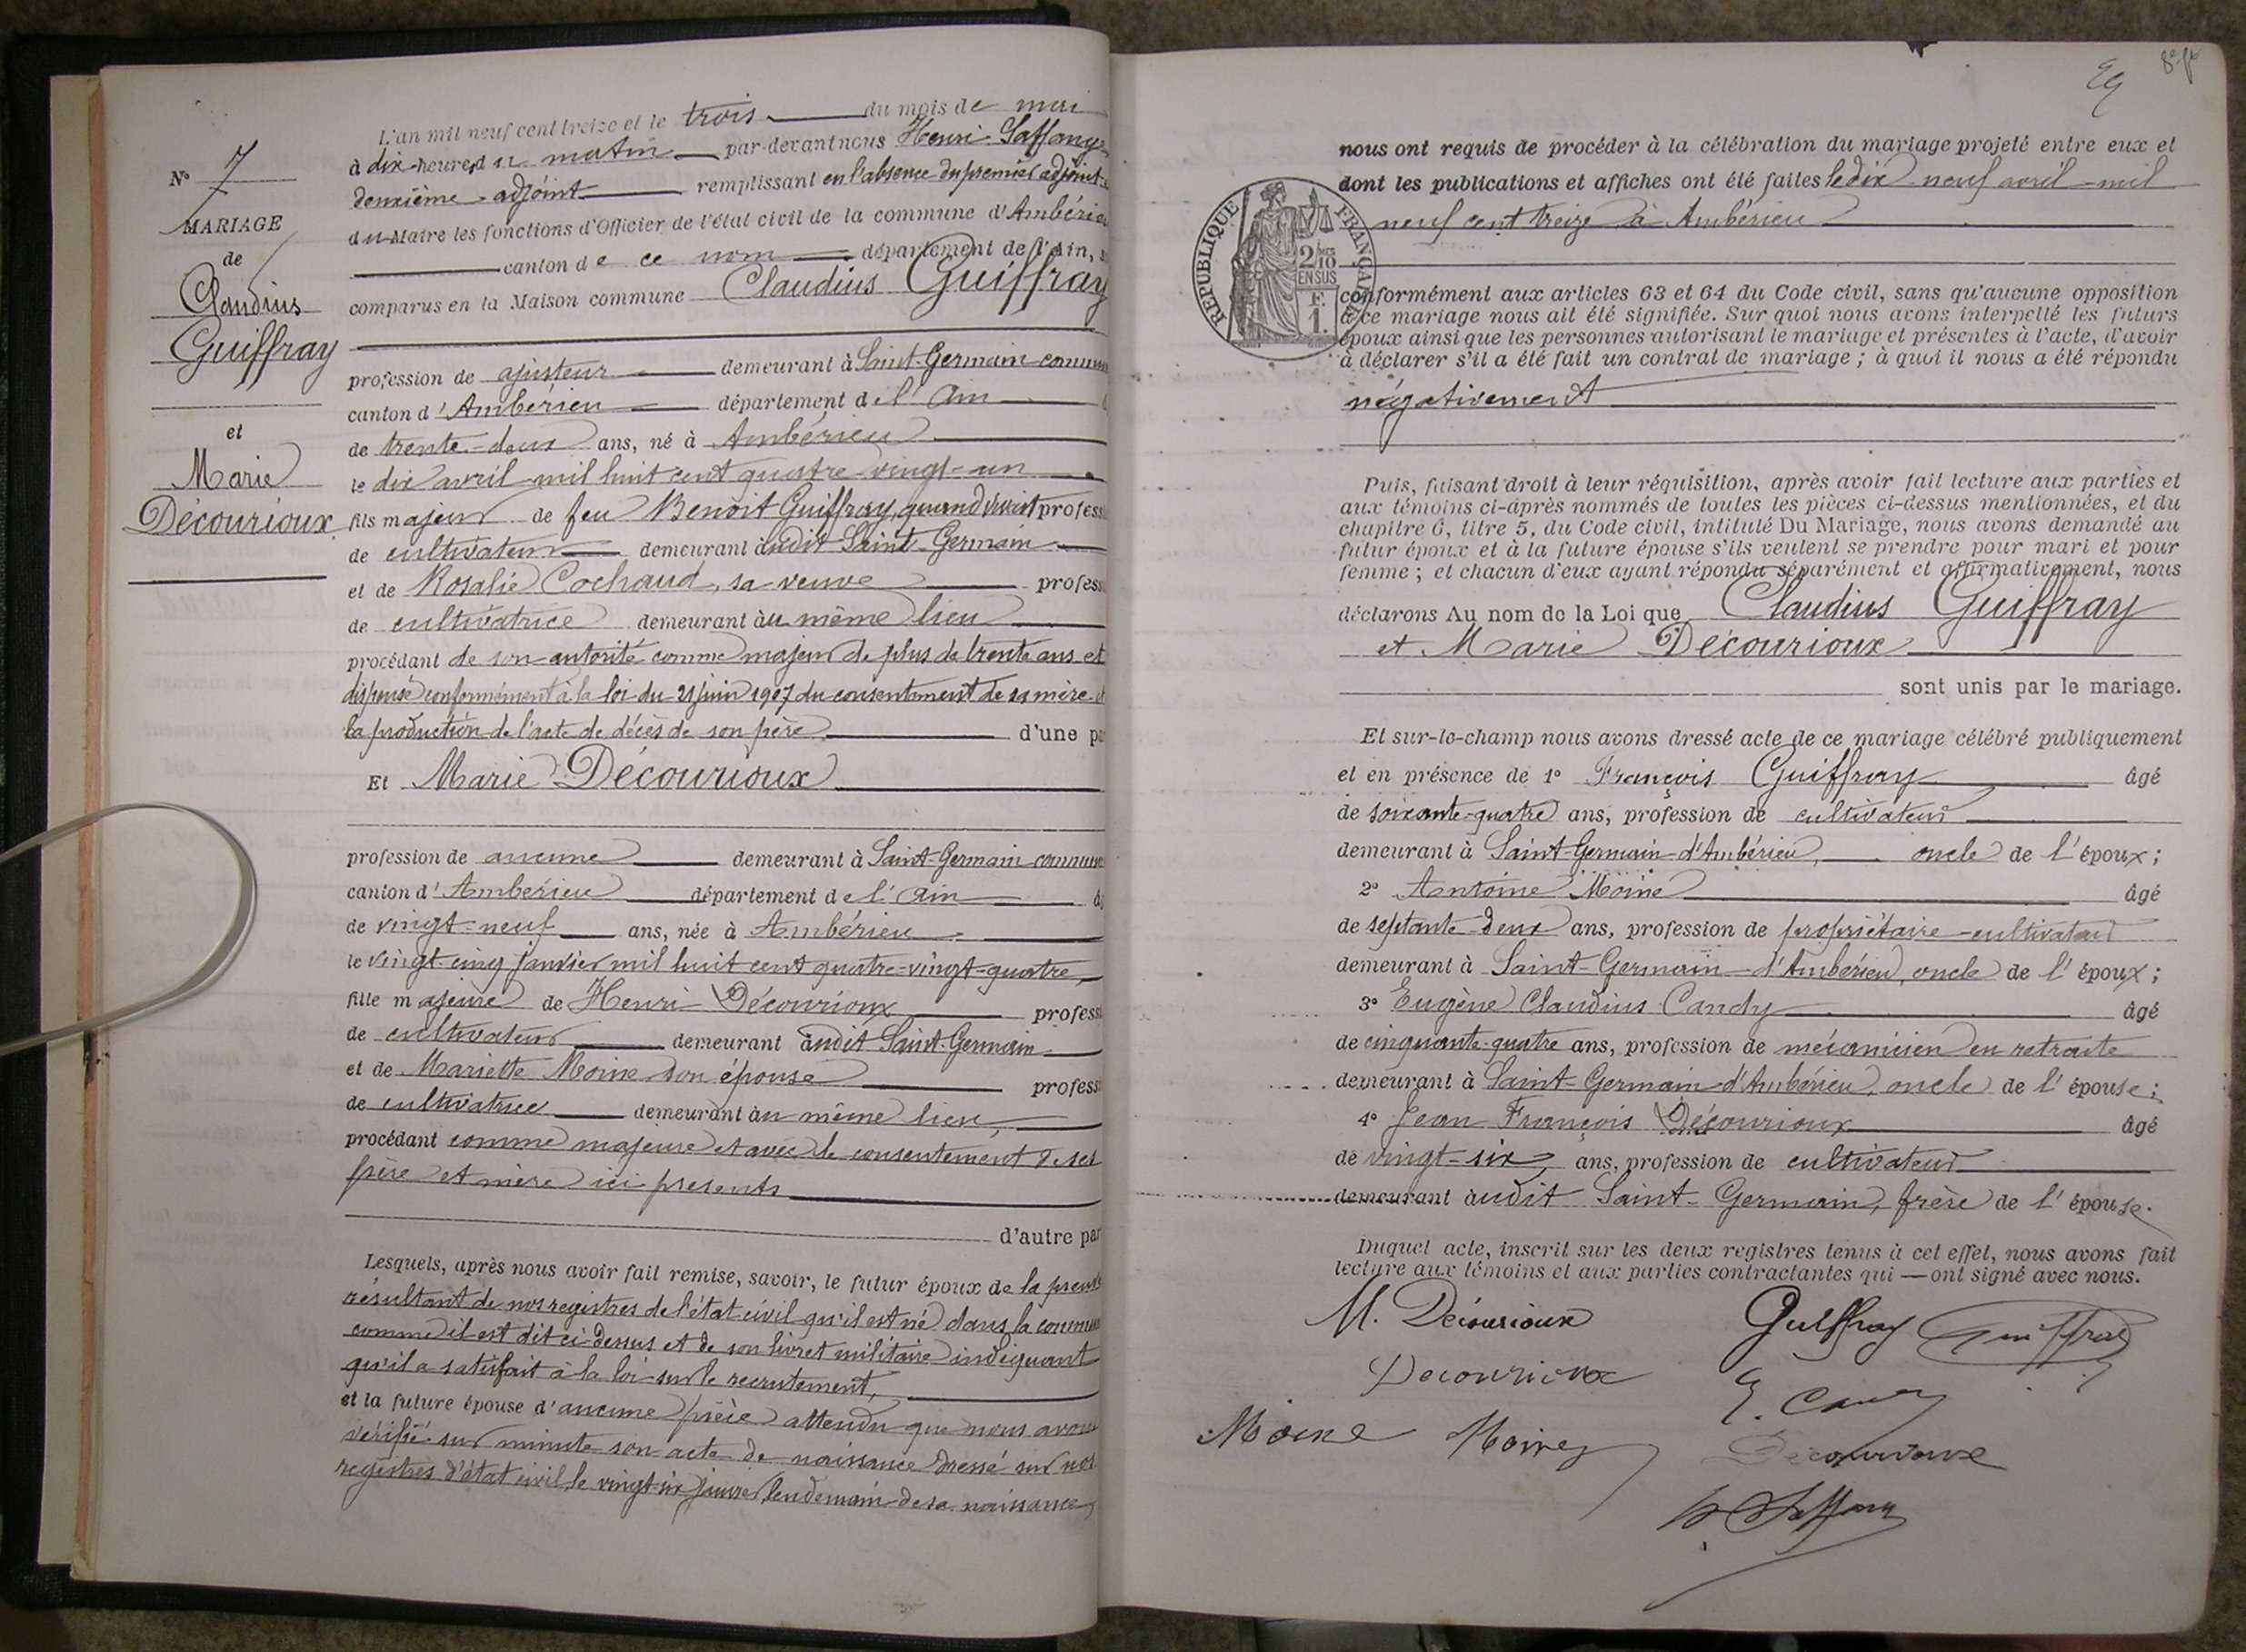 L'an mil neuf cent treize et le trois du mois de mai
à dix heures du matin par-devant nous Henri
deuxième adjoint remplissant en l'absence du premier adjoint
du Maire les fonctions d'Officier de l'état civil de la commune d'Ambérieu
canton de ce nom département de l'Ain,
comparus en la Maison commune Claudius Guiffray
N° 7
MARIAGE
de
Claudius
Guiffray
et
Marie
Décourioux
profession de ajusteur demeurant à Saint-Germain commune
canton d'Ambérieu département de l'Ain
de trente-deux ans, né à Ambérieu
le dix avril mil huit cent quatre-vingt-un
fils majeur de feu Benoit Guiffray, quand vivait profess
de cultivateur demeurant audit Saint-Germain
et de Rosalie Cochaud, sa veuve profess
de cultivatrice demeurant au même lieu
procédant de son autorité comme majeur de plus de trente ans et
dispensé conformément à la loi du 21 juin 1907 du consentement de sa mère et
la production de l'acte de décès de son père d'une pa
Et Marie Décourioux
profession de aucune demeurant à Saint-Germain commune
canton d'Ambérieu département de l'Ain
de vingt-neuf ans, née à Ambérieu
le vingt-cinq janvier mil huit cent quatre-vingt-quatre,
fille majeure de Henri Décourioux profess
de cultivateur demeurant audit Saint-Germain
et de Mariette Moine son épouse profess
de cultivatrice demeurant au même lieu,
procédant comme majeure et avec le consentement de ses
père et mère ici présents
d'autre par
Lesquels, après nous avoir fait remise, savoir, le futur époux de la preuve
résultant de nos registres de l'état-civil qu'il est né dans la commune
comme il est dit ci-dessus et de son livret militaire indiquant
qu'il a satisfait à la loi sur le recrutement,
et la future épouse d'aucune pièce attendu que nous avons
vérifié sur minute son acte de naissance dressé sur nos
registres d'état civil le vingt-six janvier, lendemain de sa naissance,
nous ont requis de procéder à la célébration du mariage projeté entre eux et
dont les publications et affiches ont été faites le dix-neuf avril mil
neuf cent treize à Ambérieu
RÉPUBLIQUE FRANÇAISE
2/10 EN SUS
F. 1.
conformément aux articles 63 et 64 du Code civil, sans qu'aucune opposition
à ce mariage nous ait été signifiée. Sur quoi nous avons interpellé les futurs
époux ainsi que les personnes autorisant le mariage et présentes à l'acte, d'avoir
à déclarer s'il a été fait un contrat de mariage ; à quoi il nous a été répondu
négativement
Puis, faisant droit à leur réquisition, après avoir fait lecture aux parties et
aux témoins ci-après nommés de toutes les pièces ci-dessus mentionnées, et du
chapitre 6, titre 5, du Code civil, intitulé Du Mariage, nous avons demandé au
futur époux et à la future épouse s'ils veulent se prendre pour mari et pour
femme ; et chacun d'eux ayant répondu séparément et affirmativement, nous
déclarons Au nom de la Loi que Claudius Guiffray
et Marie Décourioux
sont unis par le mariage.
Et sur-le-champ nous avons dressé acte de ce mariage célébré publiquement
et en présence de 1° François Guiffray âgé
de soixante-quatre ans, profession de cultivateur
demeurant à Saint-Germain-d'Ambérieu, oncle de l'époux ;
2° Antoine Moine âgé
de septante-deux ans, profession de propriétaire-cultivateur
demeurant à Saint-Germain-d'Ambérieu, oncle de l'époux ;
3° Eugène Claudius Candy âgé
de cinquante-quatre ans, profession de mécanicien en retraite
demeurant à Saint-Germain-d'Ambérieu, oncle de l'épouse ;
4° Jean François Décourioux âgé
de vingt-six ans, profession de cultivateur
demeurant audit Saint-Germain, frère de l'épouse.
Duquel acte, inscrit sur les deux registres tenus à cet effet, nous avons fait
lecture aux témoins et aux parties contractantes qui — ont signé avec nous.
M. Décourioux Guiffray Guiffray
Decourioux
Moine Moine
Decourioux